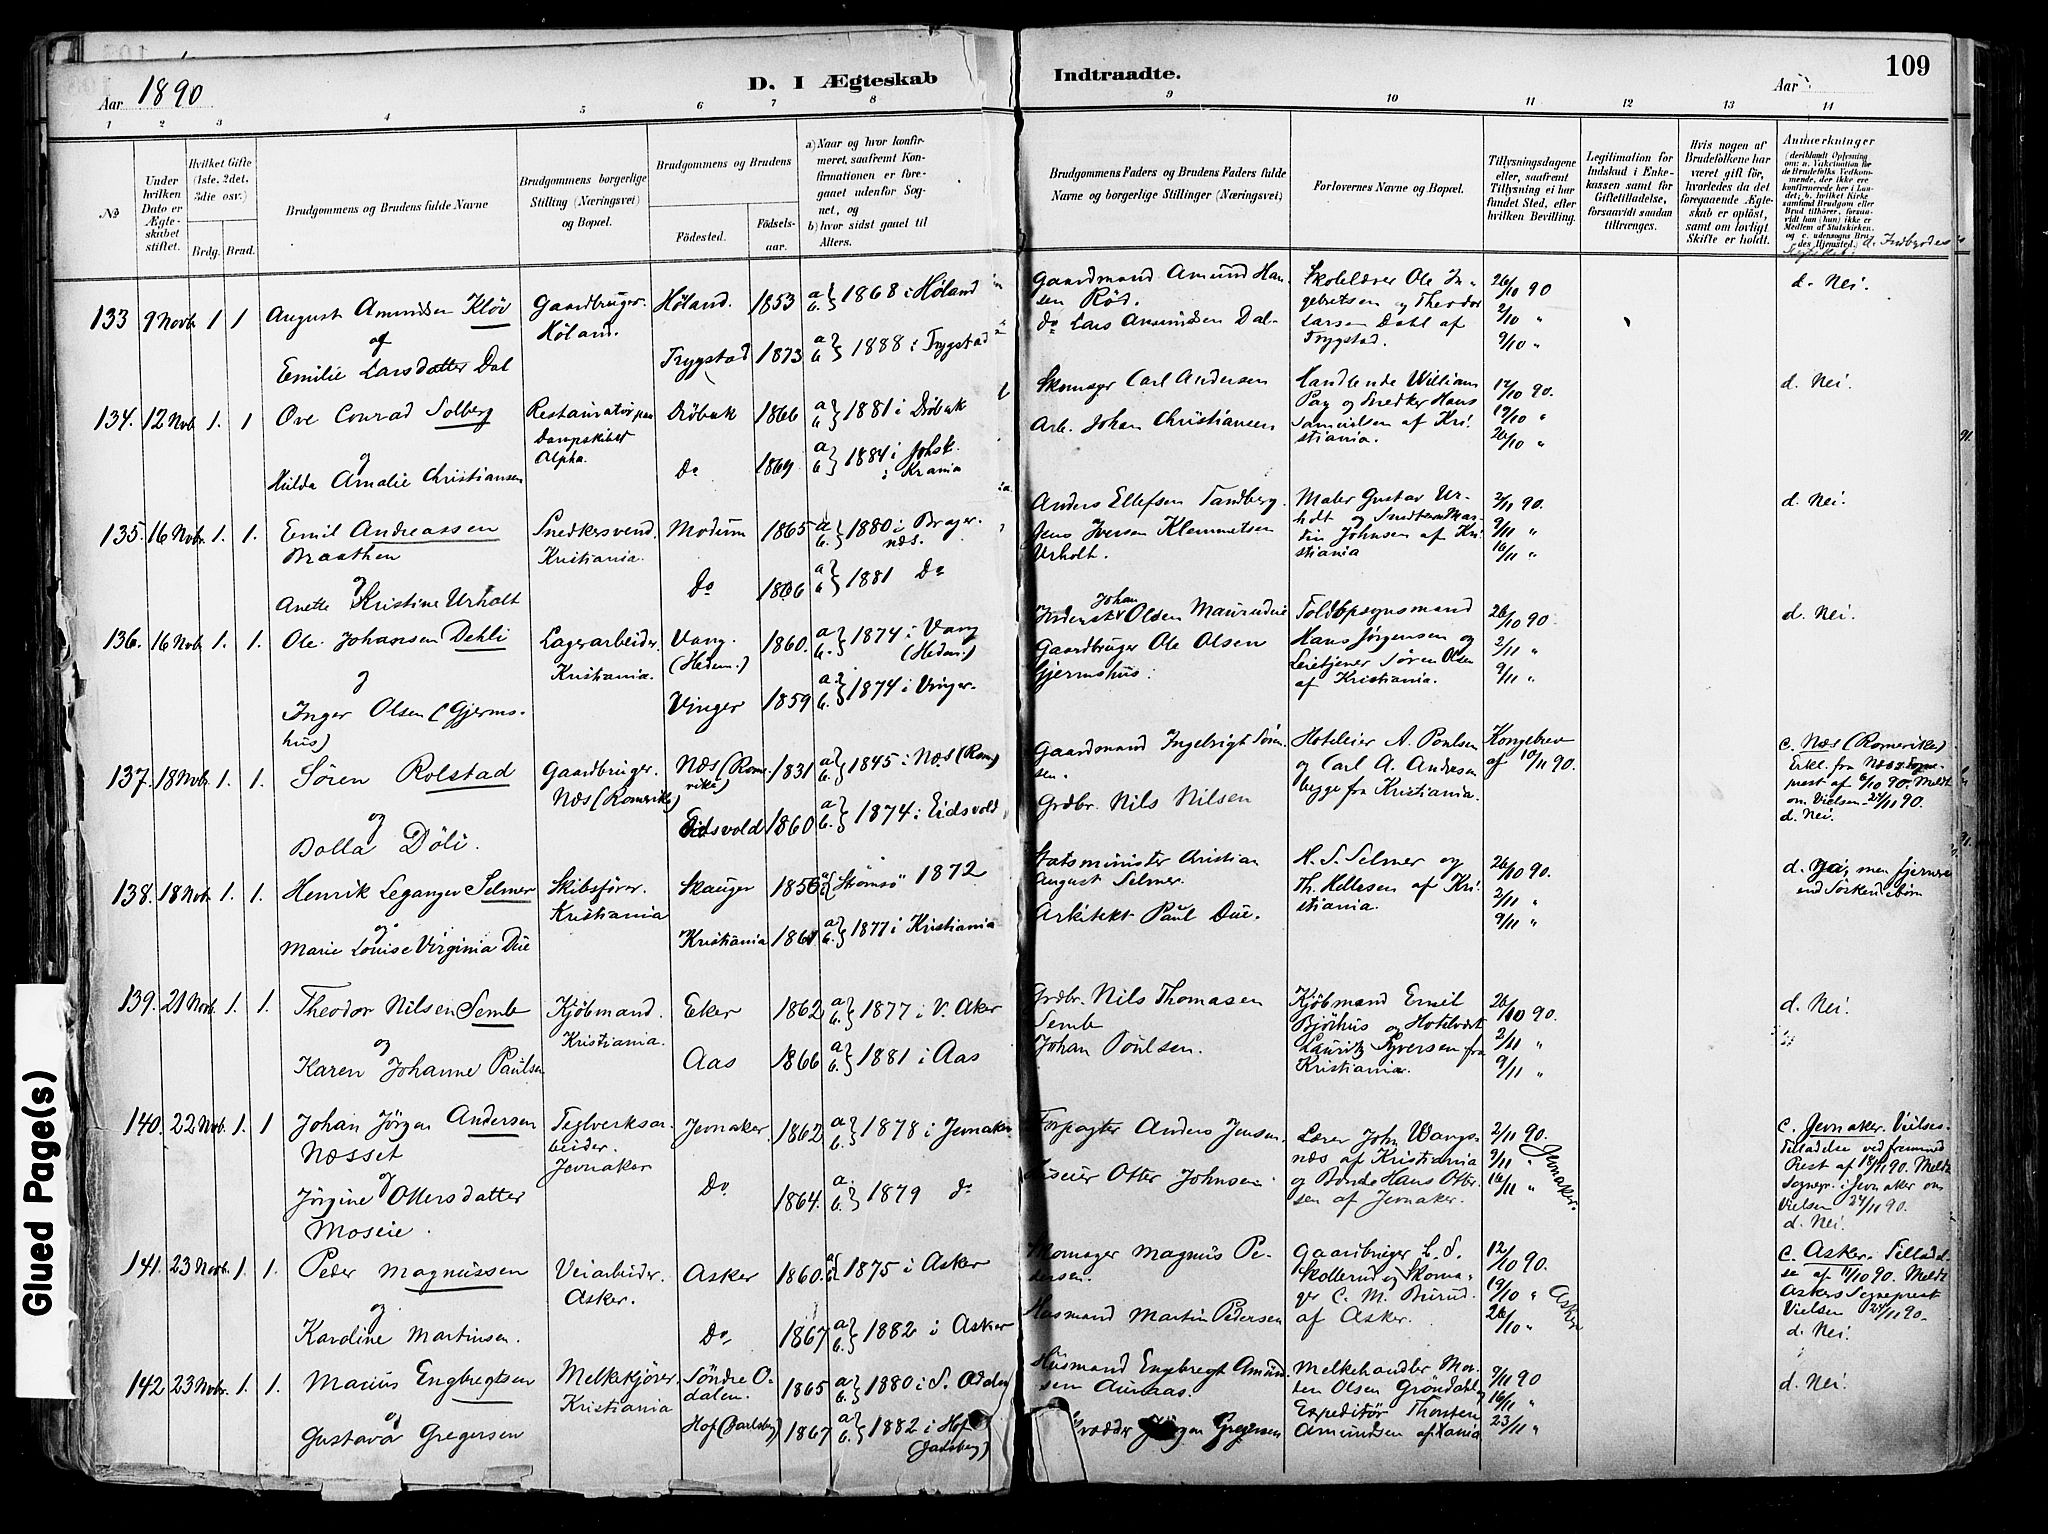 Aar 1890
D. I Ægteskab Indtraadte.
Aar
109
1 2 3 4 5 6 7 8 9 10 11 12 13 14
No
Under hvilken Dato er Ægteskabet stiftet.
Hvilket Gifte (1ste, 2det, 3die osv.)
Brdg. Brud.
Brudgommens og Brudens fulde Navne
Brudgommens borgerlige Stilling (Næringsvei) og Bopæl.
Brudgommens og Brudens
Fødested.
Fødselsaar.
a) Naar og hvor konfirmeret, saafremt Konfirmationen er foregaaet udenfor Sognet, og
b) hvor sidst gaaet til Alters.
Brudgommens Faders og Brudens Faders fulde Navne og borgerlige Stillinger (Næringsvei)
Forlovernes Navne og Bopæl.
Tillysningsdagene eller, saafremt Tillysning ei har fundet Sted, efter hvilken Bevilling.
Legitimation for Indskud i Enkekassen samt for Giftetilladelse, forsaavidt saadan tiltrænges.
Hvis nogen af Brudefolkene har været gift før, hvorledes da det foregaaende Ægteskab er opløst, samt om lovligt Skifte er holdt.
Anmerkninger
(deriblandt Oplysning om: a. Vakcination for de Brudefolks Vedkommende, der ikke ere konfirmerede her i Landet; b. hvilket Kirkesamfund Brudgom eller Brud tilhører, forsaavidt han (hun) ikke er Medlem af Statskirken, og c. udensogns Brudes Hjemsted.)
133 9 Novb 1 1 August Amundsen Kløv
af
Emilie Larsdatter Dal
Gaardbruger. Høland.
Høland. 1853 a b } 1868 i Høland
Trygstad 1873 a b } 1888 i Trygstad
Gaardmand Amund Hansen Röd.
do Lars Amundsen Dal
Skolelærer Ole Ingebretsen og Theodor Larsen Dahl af Trygstad.
26/10 90
2/10 "
9/10 "
d. Nei.
134. 12 Novb 1. 1 Ove Conrad Solberg
og
Hulda Amalie Christiansen
Restauratör paa Dampskibet Alpha.
Dröbak 1866 a b } 1881 i Dröbak
Do 1869 a b } 1884 i Johsk. i Krania
Skomager Carl Andersen
Arb. Johan Christiansen
Handlende William Pay og Snedker Hans Samuelsen af Kristiania.
12/10 90.
19/10 "
26/10 "
d. Nei.
135. 16 Novbr. 1. 1. Emil Andreassen Braathen
og
Anette Kristine Urholt
Snedkersvend. Kristiania.
Modum 1865 a b } 1880 i Bragernæs.
Do 1866 a b } 1881 Do
Anders Ellefsen Tandberg.
Jens Iversen Klemmetsen Urholt.
Maler Gustav Urholt og Snedker Martin Johnsen af Kristiania
2/11 90.
9/11 "
16/11 "
d. Nei.
136. 16 Novb 1. 1. Ole Johansen Dehli
og
Inger Olsen (Gjermshus)
Lagerarbeider. Kristiania.
Vang. (Hedem.) 1860. a b } 1874 i Vang (Hedem.)
Vinger 1859 a b } 1874 i Vinger.
Johan Olsen
Gaardbruger Ole Olsen Gjermshus.
Toldopsynsmand Hans Jörgensen og Leietjener Sören Olsen af Kristiania.
26/10 90.
2/11 "
9/11 "
d. Nei.
137. 18 Novbr 1. 1. Sören Rolstad
og
Bolla Döli.
Gaardbruger. Næs (Romerike)
Næs (Romerike) 1831 a b } 1845 i Næs (Rom)
Eidsvold 1860 a b } 1874 i Eidsvold
Gaardmand Ingebrigt Sörensen.
Grdbr. Nils Nilsen
Hoteleier A. Poulsen og Carl A. Andresen begge fra Kristiania.
Kongebrev af 10/11 90.
c. Næs (Romerike) Erkl. fra Næs Sogneprest af 6/10 90. Meldt om Vielsen 24/11 90.
d. Nei.
138. 18 Novb 1. 1. Henrik Leganger Selmer
og
Marie Louise Virginia Due
Skibsförer. Kristiania
Skauger 1856 Strömsö 1872
Kristiania 1861 a b } 1877 i Kristiania
Statsminister Christian August Selmer.
Arkitekt Paul Due.
H. S. Selmer og Th. Hellesen af Kristiania.
26/10 90.
2/11 "
9/11 "
d. Ja, men fjernere end Söskendebörn
139. 21 Novb. 1. 1. Theodor Nilsen Semb
og
Karen Johanne Paulsen
Kjöbmand. Kristiania.
Eker 1862 a b } 1877 i V. Aker
Aas 1866 a b } 1881 i Aas
Grdbr. Nils Thomasen Semb
Johan Poulsen.
Kjöbmand Emil Bjørhus og Hotelvært Lauritz Syversen fra Kristiania.
26/10 90.
2/11 "
9/11 "
d. Nei.
140. 22 Novb. 1. 1 Johan Jörgen Andersen Næsset
og
Jörgine Ottersdatter Moseie.
Teglverksarbeider. Jevnaker
Jevnaker. 1862 a b } 1878 i Jevnaker
Do 1864. a. b. } 1879 do
Forpagter Anders Jensen
Otter Johnsen
Lærer John Wangsnæs af Kristiania og Bonde Hans Ottersen af Jevnaker.
2/11 90.
9/11 "
16/11 "
Jevnaker.
c. Jevnaker. Vielses-Tilladelse ved fremmed Prest af 18/11 90. Meldt Sognepr. i Jevnaker om Vielsen 24/11 90.
d. Nei.
141. 23 Novb. 1. 1. Peder Magnussen
og
Karoline Martinsen.
Veiarbeider. Asker.
Asker 1860. 1875 i Asker
Do, 1867 a b } 1882 i Asker
Skomager Magnus Pedersen.
Husmand Martin Pedersen
Gaardbruger L. S. Skollerud og Skomager C. M. Burud. af Asker.
12/10 90.
19/10 "
26/10 "
Asker
c. Asker. Tilladelse af 11/10 90. Meldt Askers Sogneprest Vielsen 24/11 90.
d. Nei.
142 23 Novbr. 1. 1. Marius Engbregtsen
og
Gustava Gregersen
Melkekjörer Kristiania
Söndre Odalen. 1865 a b } 1880 i S. Odalen
Hof (Jarlsberg) 1867 a b } 1882 i Hof (Jarlsberg)
Husmand Engbregt Amundsen Aurnæs.
Jörgen Gregersen
Melkehandler Morten Olsen Gröndahl Expeditör Thorsten Amundsen af Xania
9/11 90
16/11 "
23/11 "
d. Nei.
Glued Page(s)